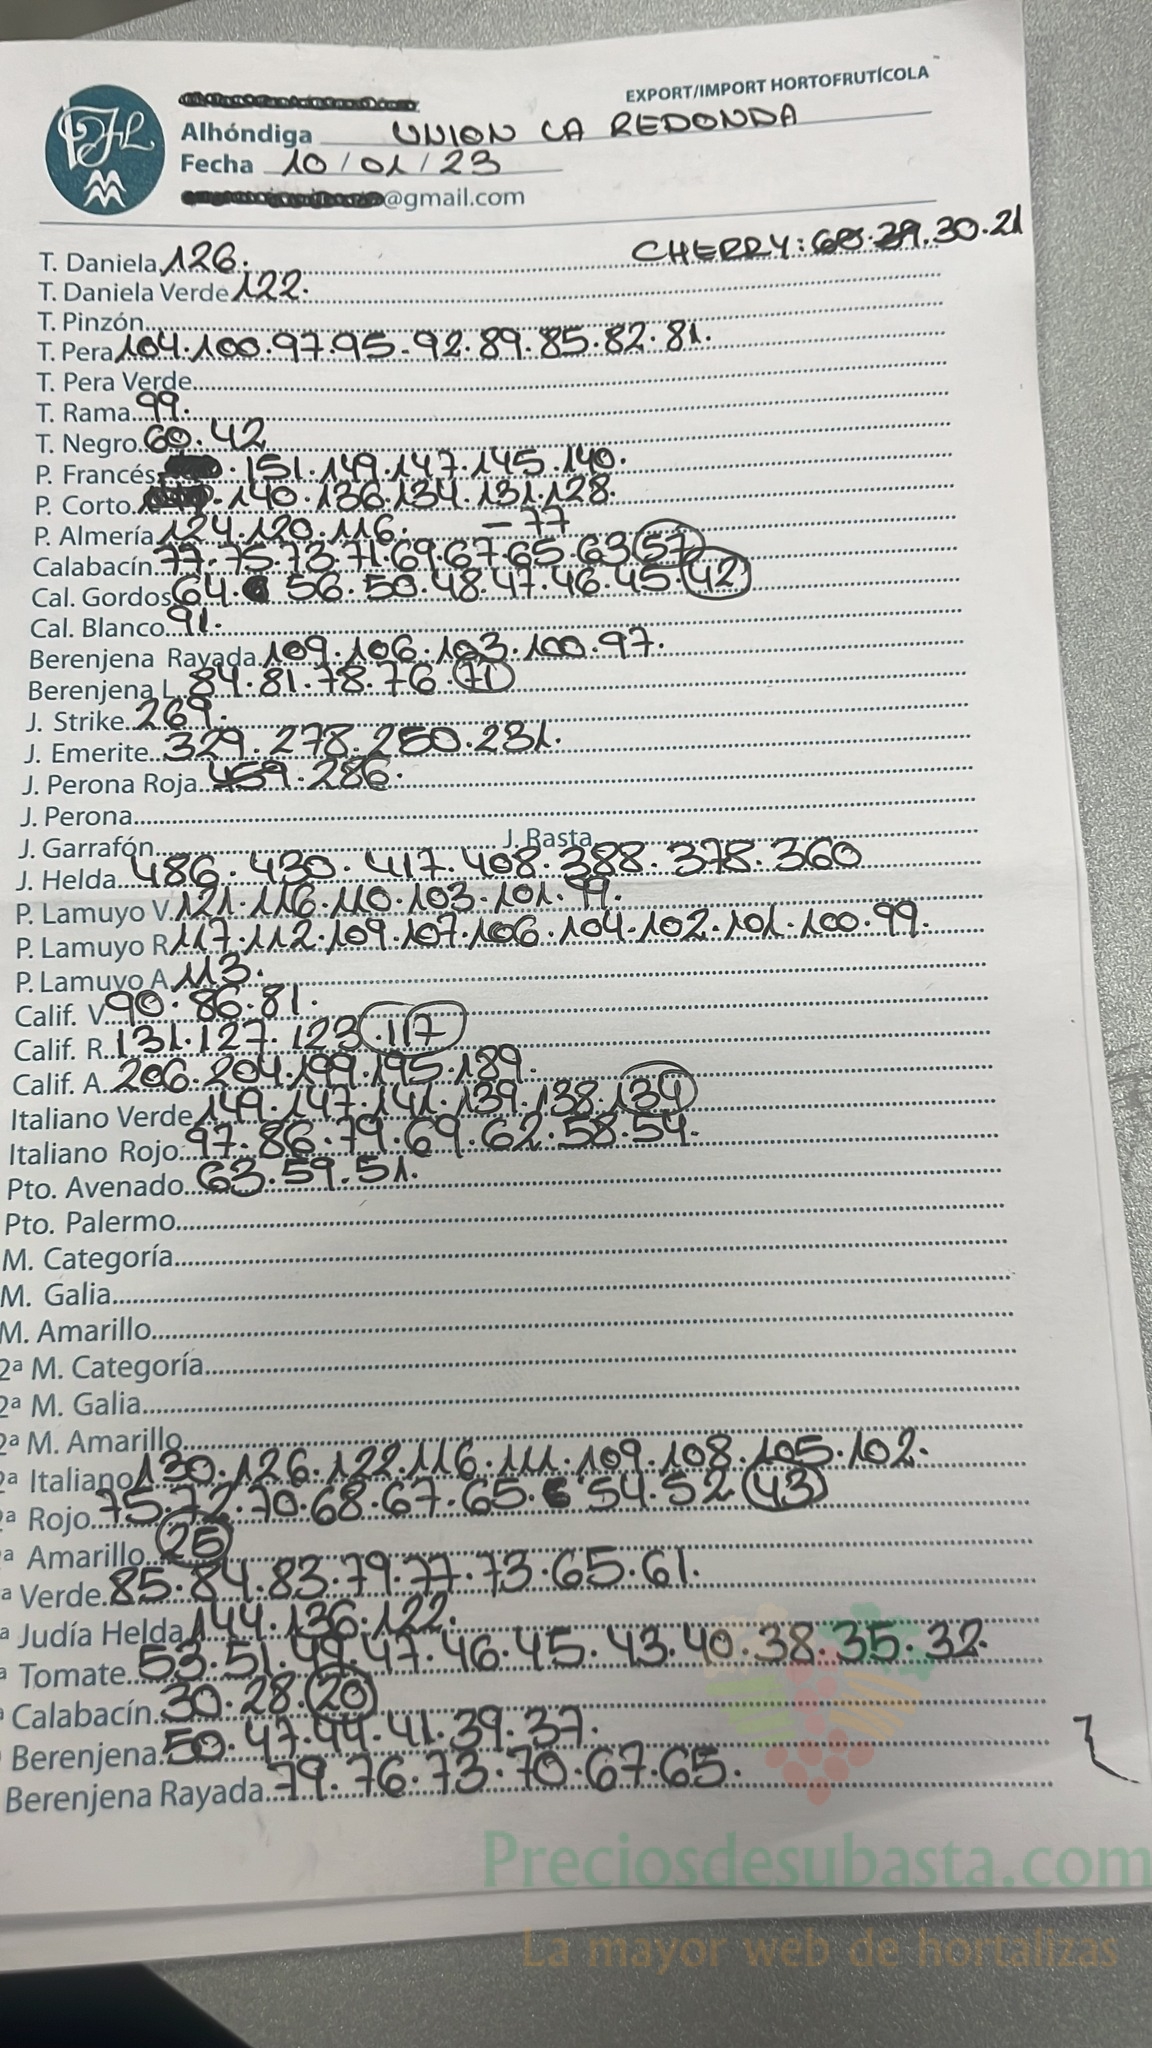 EXPORT/IMPORT HORTOFRUTÍCOLA
Alhóndiga UNION LA REDONDA
Fecha 10/01/23
@gmail.com
CHERRY: 60.39.30.21
T. Daniela 126.
T. Daniela Verde 122.
T. Pinzón
T. Pera 104.100.97.95.92.89.85.82.81.
T. Pera Verde
T. Rama 99.
T. Negro 60.42
P. Francés 151.149.147.145.140.
P. Corto 140.136.134.131.128.
P. Almería 124.120.116. -77
Calabacín 77.75.73.71.69.67.65.63 57
Cal. Gordos 64. 56.50.48.47.46.45.42
Cal. Blanco 91.
Berenjena Rayada 109.106.103.100.97.
Berenjena L. 84.81.78.76.71
J. Strike 269.
J. Emerite 329.278.250.231.
J. Perona Roja 459.286.
J. Perona
J. Garrafón J. Rasta
J. Helda 486.430.417.408.388.378.360
P. Lamuyo V 121.116.110.103.101.99.
P. Lamuyo R 117.112.109.107.106.104.102.101.100.99.
P. Lamuyo A 113.
Calif. V 90.86.81.
Calif. R 131.127.123.117
Calif. A 206.204.199.195.189.
Italiano Verde 149.147.141.139.138.134
Italiano Rojo 97.86.79.69.62.58.54.
Pto. Avenado 63.59.51.
Pto. Palermo
M. Categoría
M. Galia
M. Amarillo
2ª M. Categoría
2ª M. Galia
2ª M. Amarillo
2ª Italiano 130.126.122.116.111.109.108.105.102.
ª Rojo 75.72.70.68.67.65. 54.52 43
ª Amarillo 25
ª Verde 85.84.83.79.77.73.65.61.
ª Judía Helda 144.136.122.
ª Tomate 53.51.49.47.46.45.43.40.38.35.32.
ª Calabacín 30.28.20
Berenjena 50.47.44.41.39.37.
Berenjena Rayada 79.76.73.70.67.65.
Preciosdesubasta.com
La mayor web de hortalizas